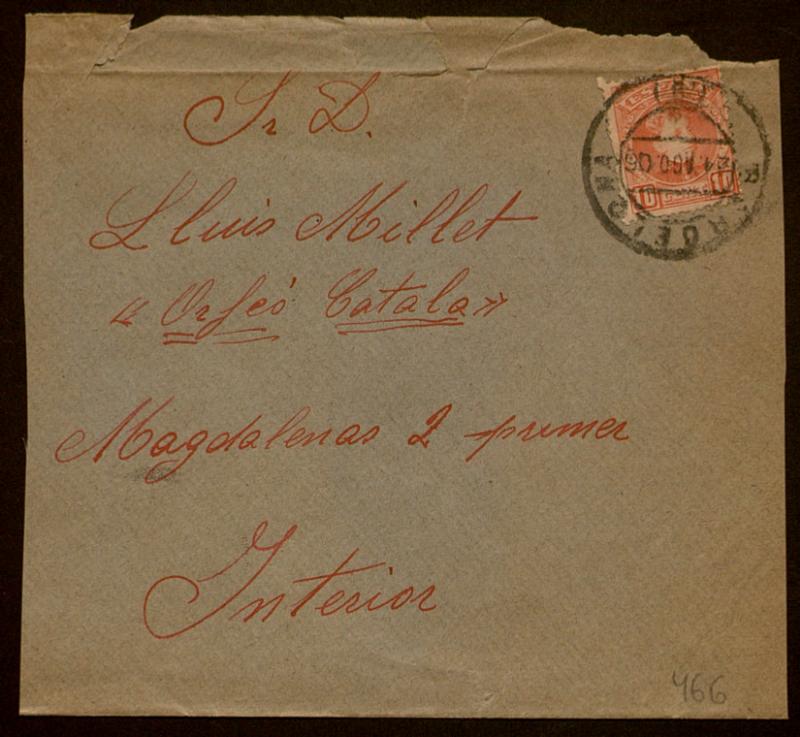 Sr D.
Lluis Millet
« Orfeó Catala »
Magdalenas 2 primer
Interior
BARCELONA
21 AGO 06
10
466